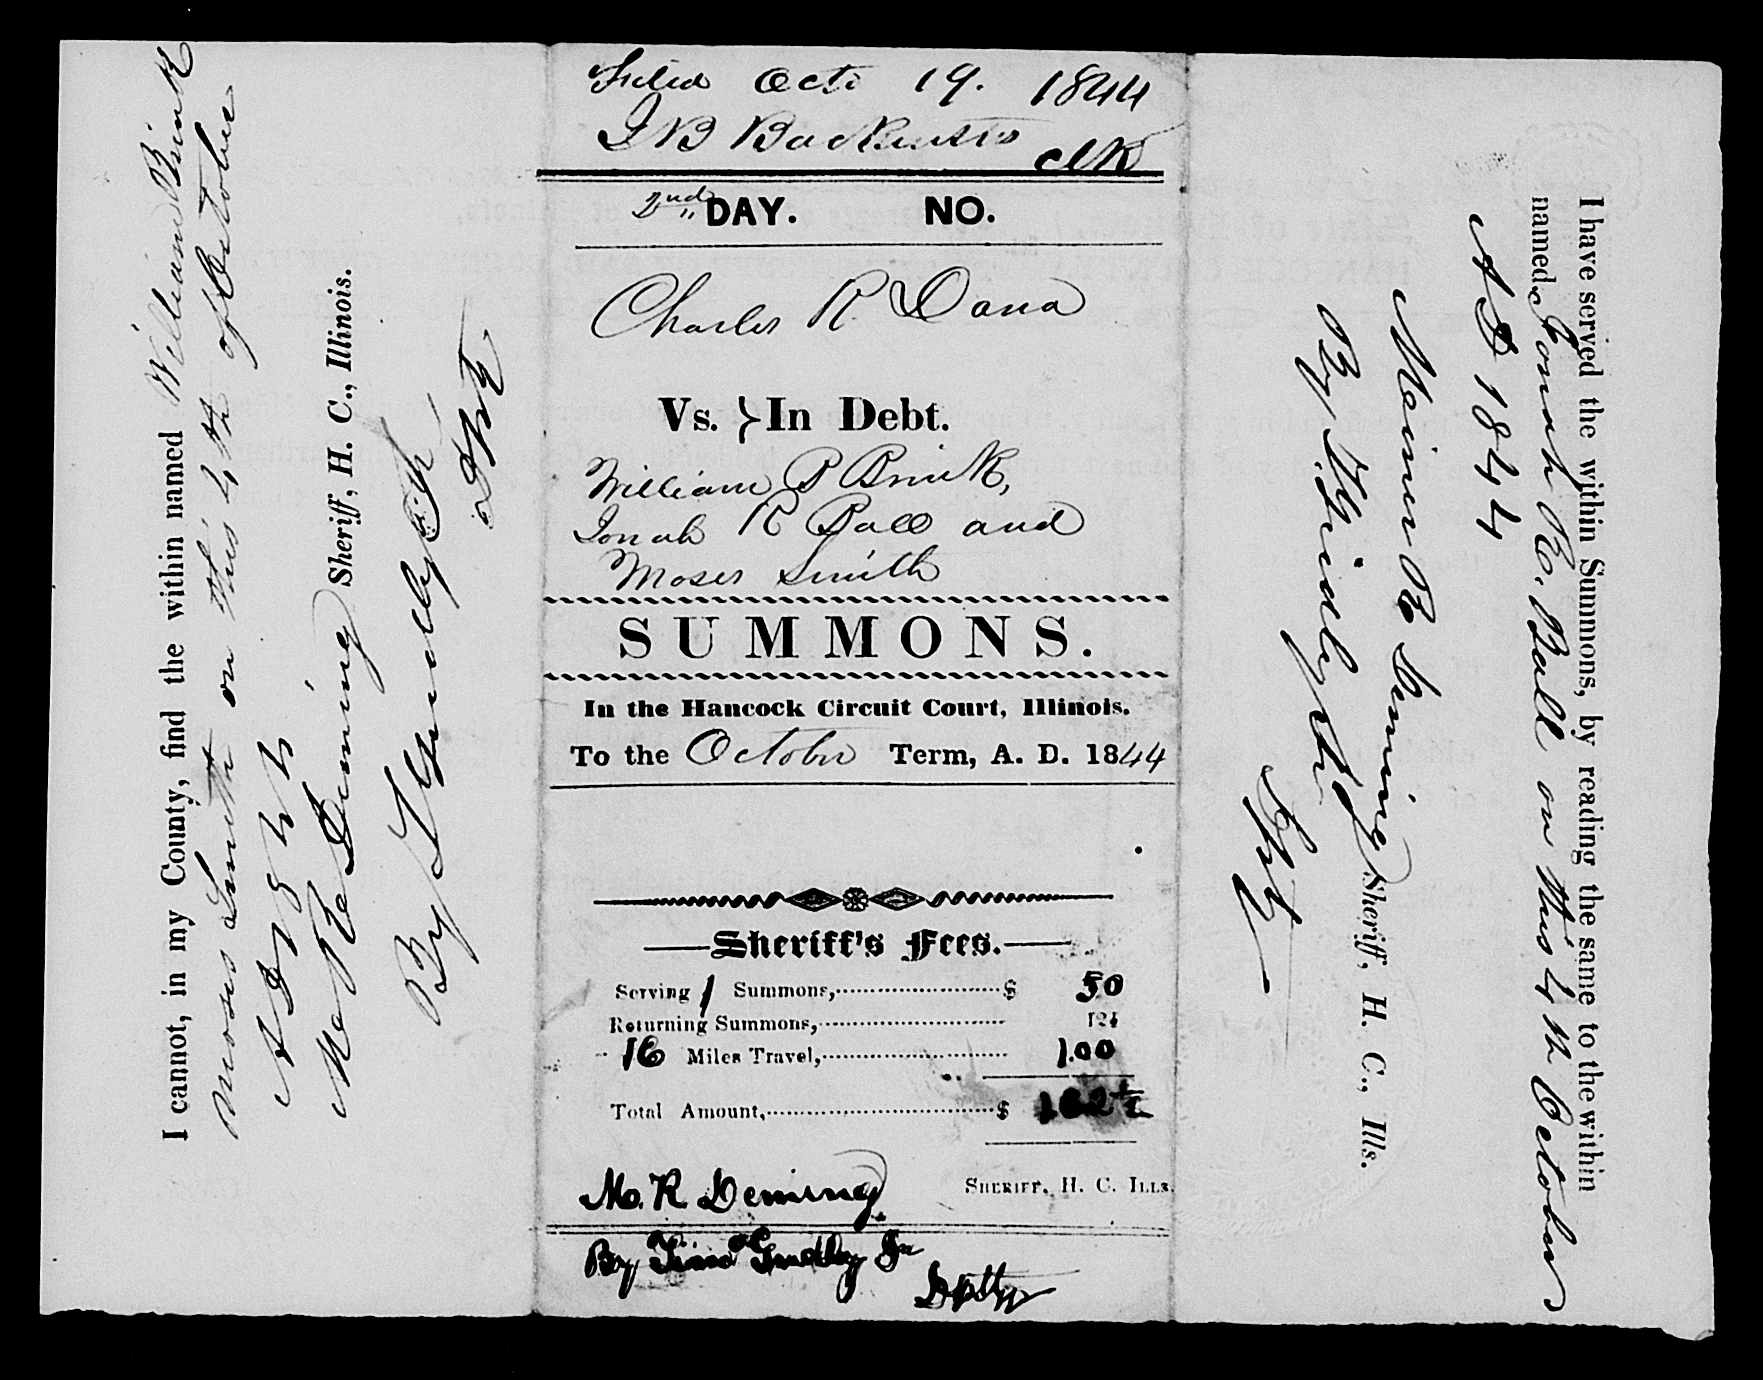 Filed Oct. 19. 1844
J B Backenstos
clk
2nd DAY. NO.
Charles R. Dana
Vs. } In Debt.
William P Brink,
Jonah R Ball and
Moses Smith
SUMMONS.
In the Hancock Circuit Court, Illinois.
To the October Term, A. D. 1844
Sheriff's Fees.
Serving 1 Summons, $ 50
Returning Summons, 12½
16 Miles Travel, 1.00
Total Amount, $ 162½
M. R Deming SHERIFF, H. C. ILLS.
By
Dpty
I cannot, in my County, find the within named William Brink
Moses Smith on this 4th of October
AD 1844
M R Deming Sheriff, H. C., Illinois.
By
I have served the within Summons, by reading the same to the within
named Jonah R. Ball on this 4th October
AD 1844
Minor R Deming Sheriff, H. C., Ills.
By
Dpty